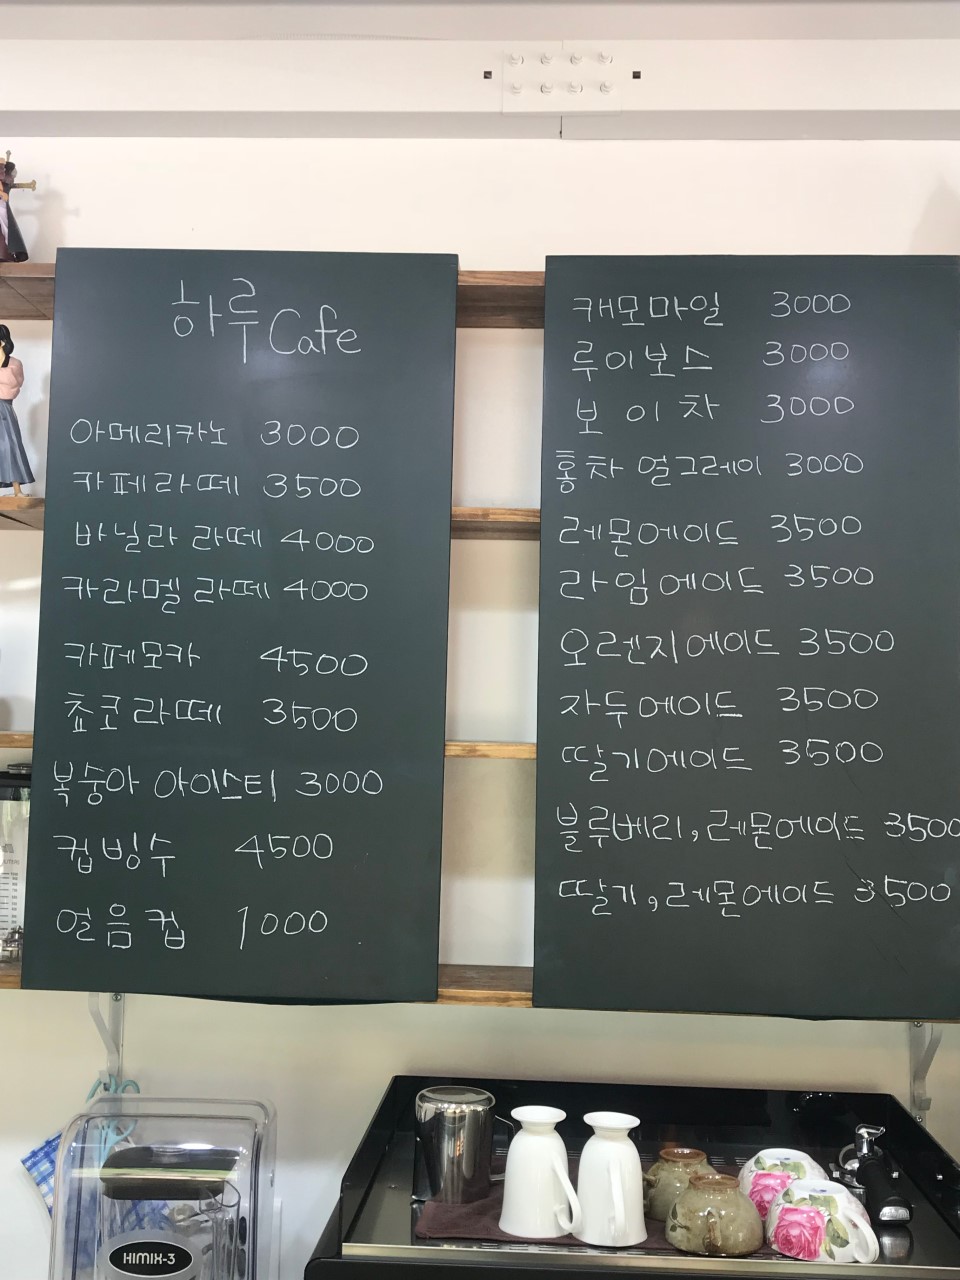 하루 Cafe
아메리카노 3000
카페라떼 3500
바닐라 라떼 4000
카라멜 라떼 4000
카페모카 4500
쵸코라떼 3500
복숭아 아이스티 3000
컵빙수 4500
얼음컵 1000
캐모마일 3000
루이보스 3000
보이차 3000
홍차 얼그레이 3000
레몬에이드 3500
라임에이드 3500
오렌지에이드 3500
자두에이드 3500
딸기에이드 3500
블루베리,레몬에이드 3500
딸기,레몬에이드 3500
HIMIX-3